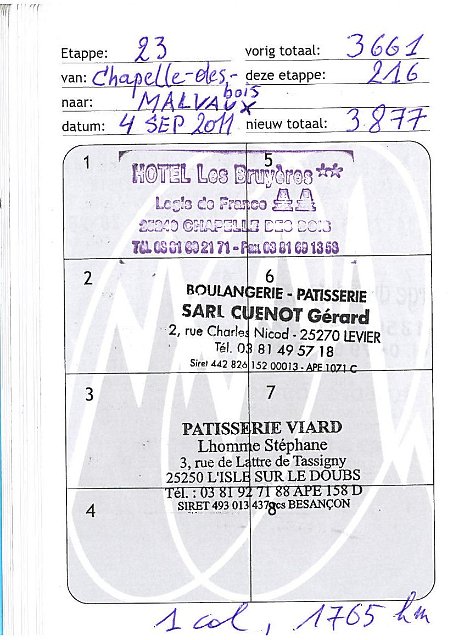 Etappe: 23 vorig totaal: 3661
van: Chapelle-des- deze etappe: 216
bois
naar: MALVAUX
datum: 4 SEP 2011 nieuw totaal: 3877
1 5
HOTEL Les Bruyères **
Logis de France
25240 CHAPELLE DES BOIS
Tél. 03 81 69 21 71 - Fax 03 81 69
2 6
BOULANGERIE - PATISSERIE
SARL CUENOT Gérard
2, rue Charles Nicod - 25270 LEVIER
Tél. 03 81 49 57 18
Siret 442 826 152 00013 - APE 1071 C
3 7
PATISSERIE VIARD
Lhomme Stéphane
3, rue de Lattre de Tassigny
25250 L'ISLE SUR LE DOUBS
Tél. : 03 81 92 71 88 APE 158 D
SIRET 493 013 437 rcs BESANÇON
4 8
1 col, 1765 hm